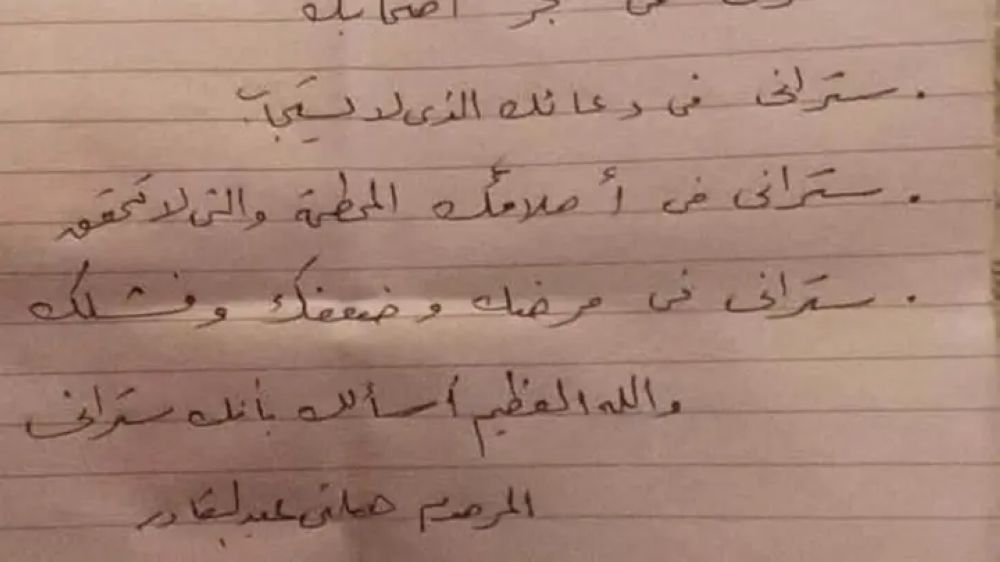 في أصحابك
. ستراني في دعائك الذي لا يستجاب
. ستراني في أحلامك المحطمة والتي لا تتحقق
. ستراني في مرضك وضعفك وفشلك
والله العظيم أسألك بأنك ستراني
المرحوم عبدالقادر